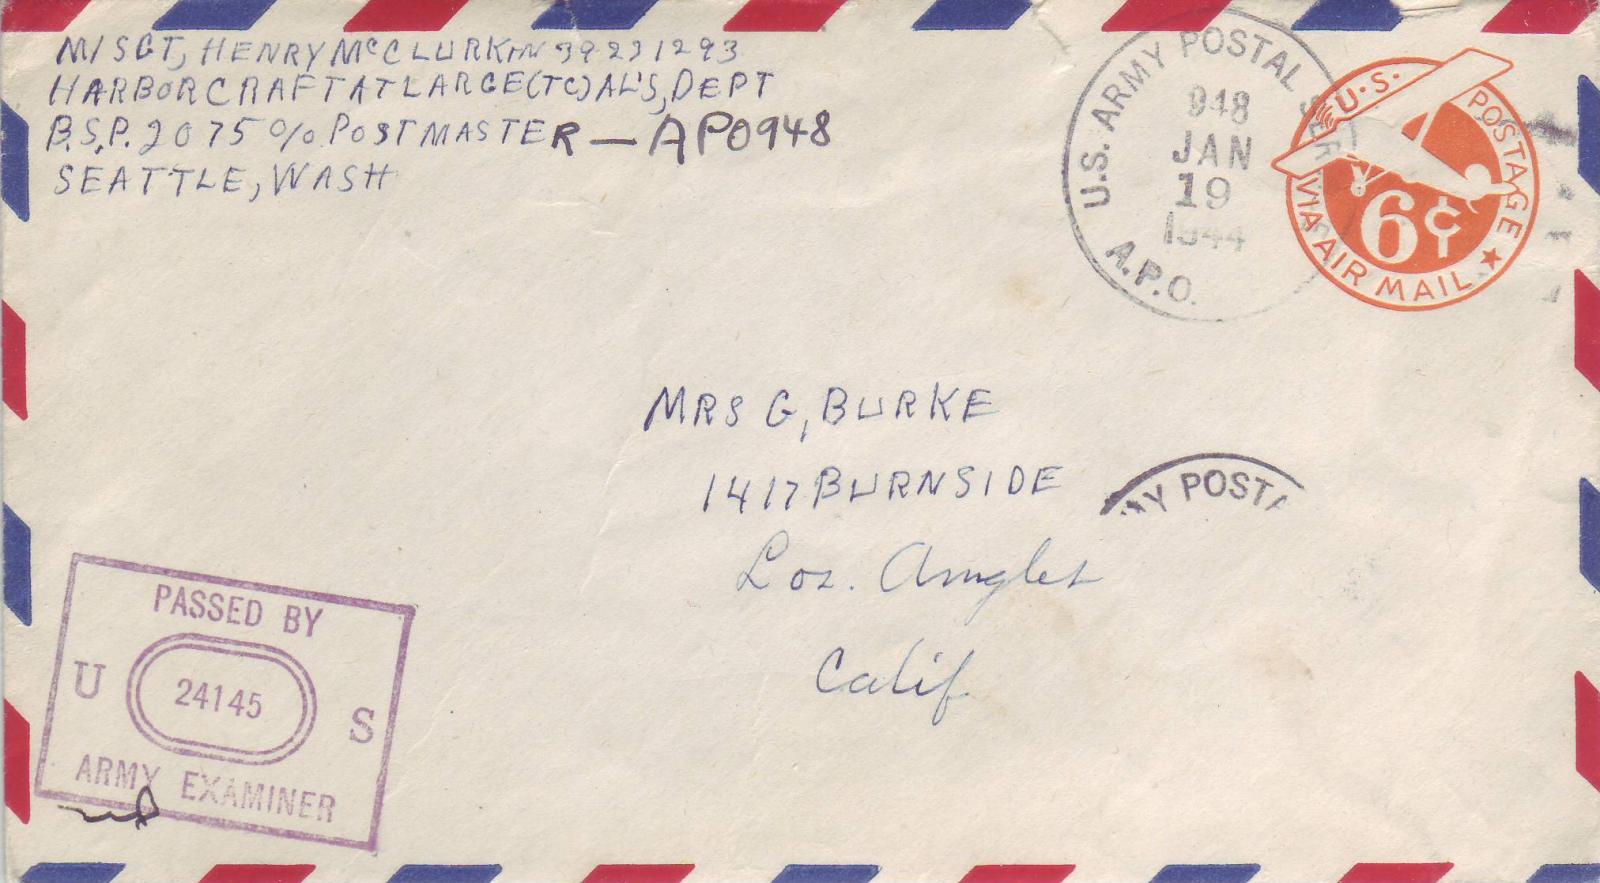 M/SGT, HENRY McCLURKIN 39231293
HARBORCRAFTATLARGE(TC)AL'S,DEPT
B.S,P. 2075 % POSTMASTER — APO948
SEATTLE, WASH
U.S. ARMY POSTAL SER
948
JAN
19
1944
A.P.O.
U.S. POSTAGE
6¢
VIA AIR MAIL
MRS G, BURKE
1417 BURNSIDE
Los. Angles
Calif.
MY POSTA
PASSED BY
U 24145 S
ARMY EXAMINER